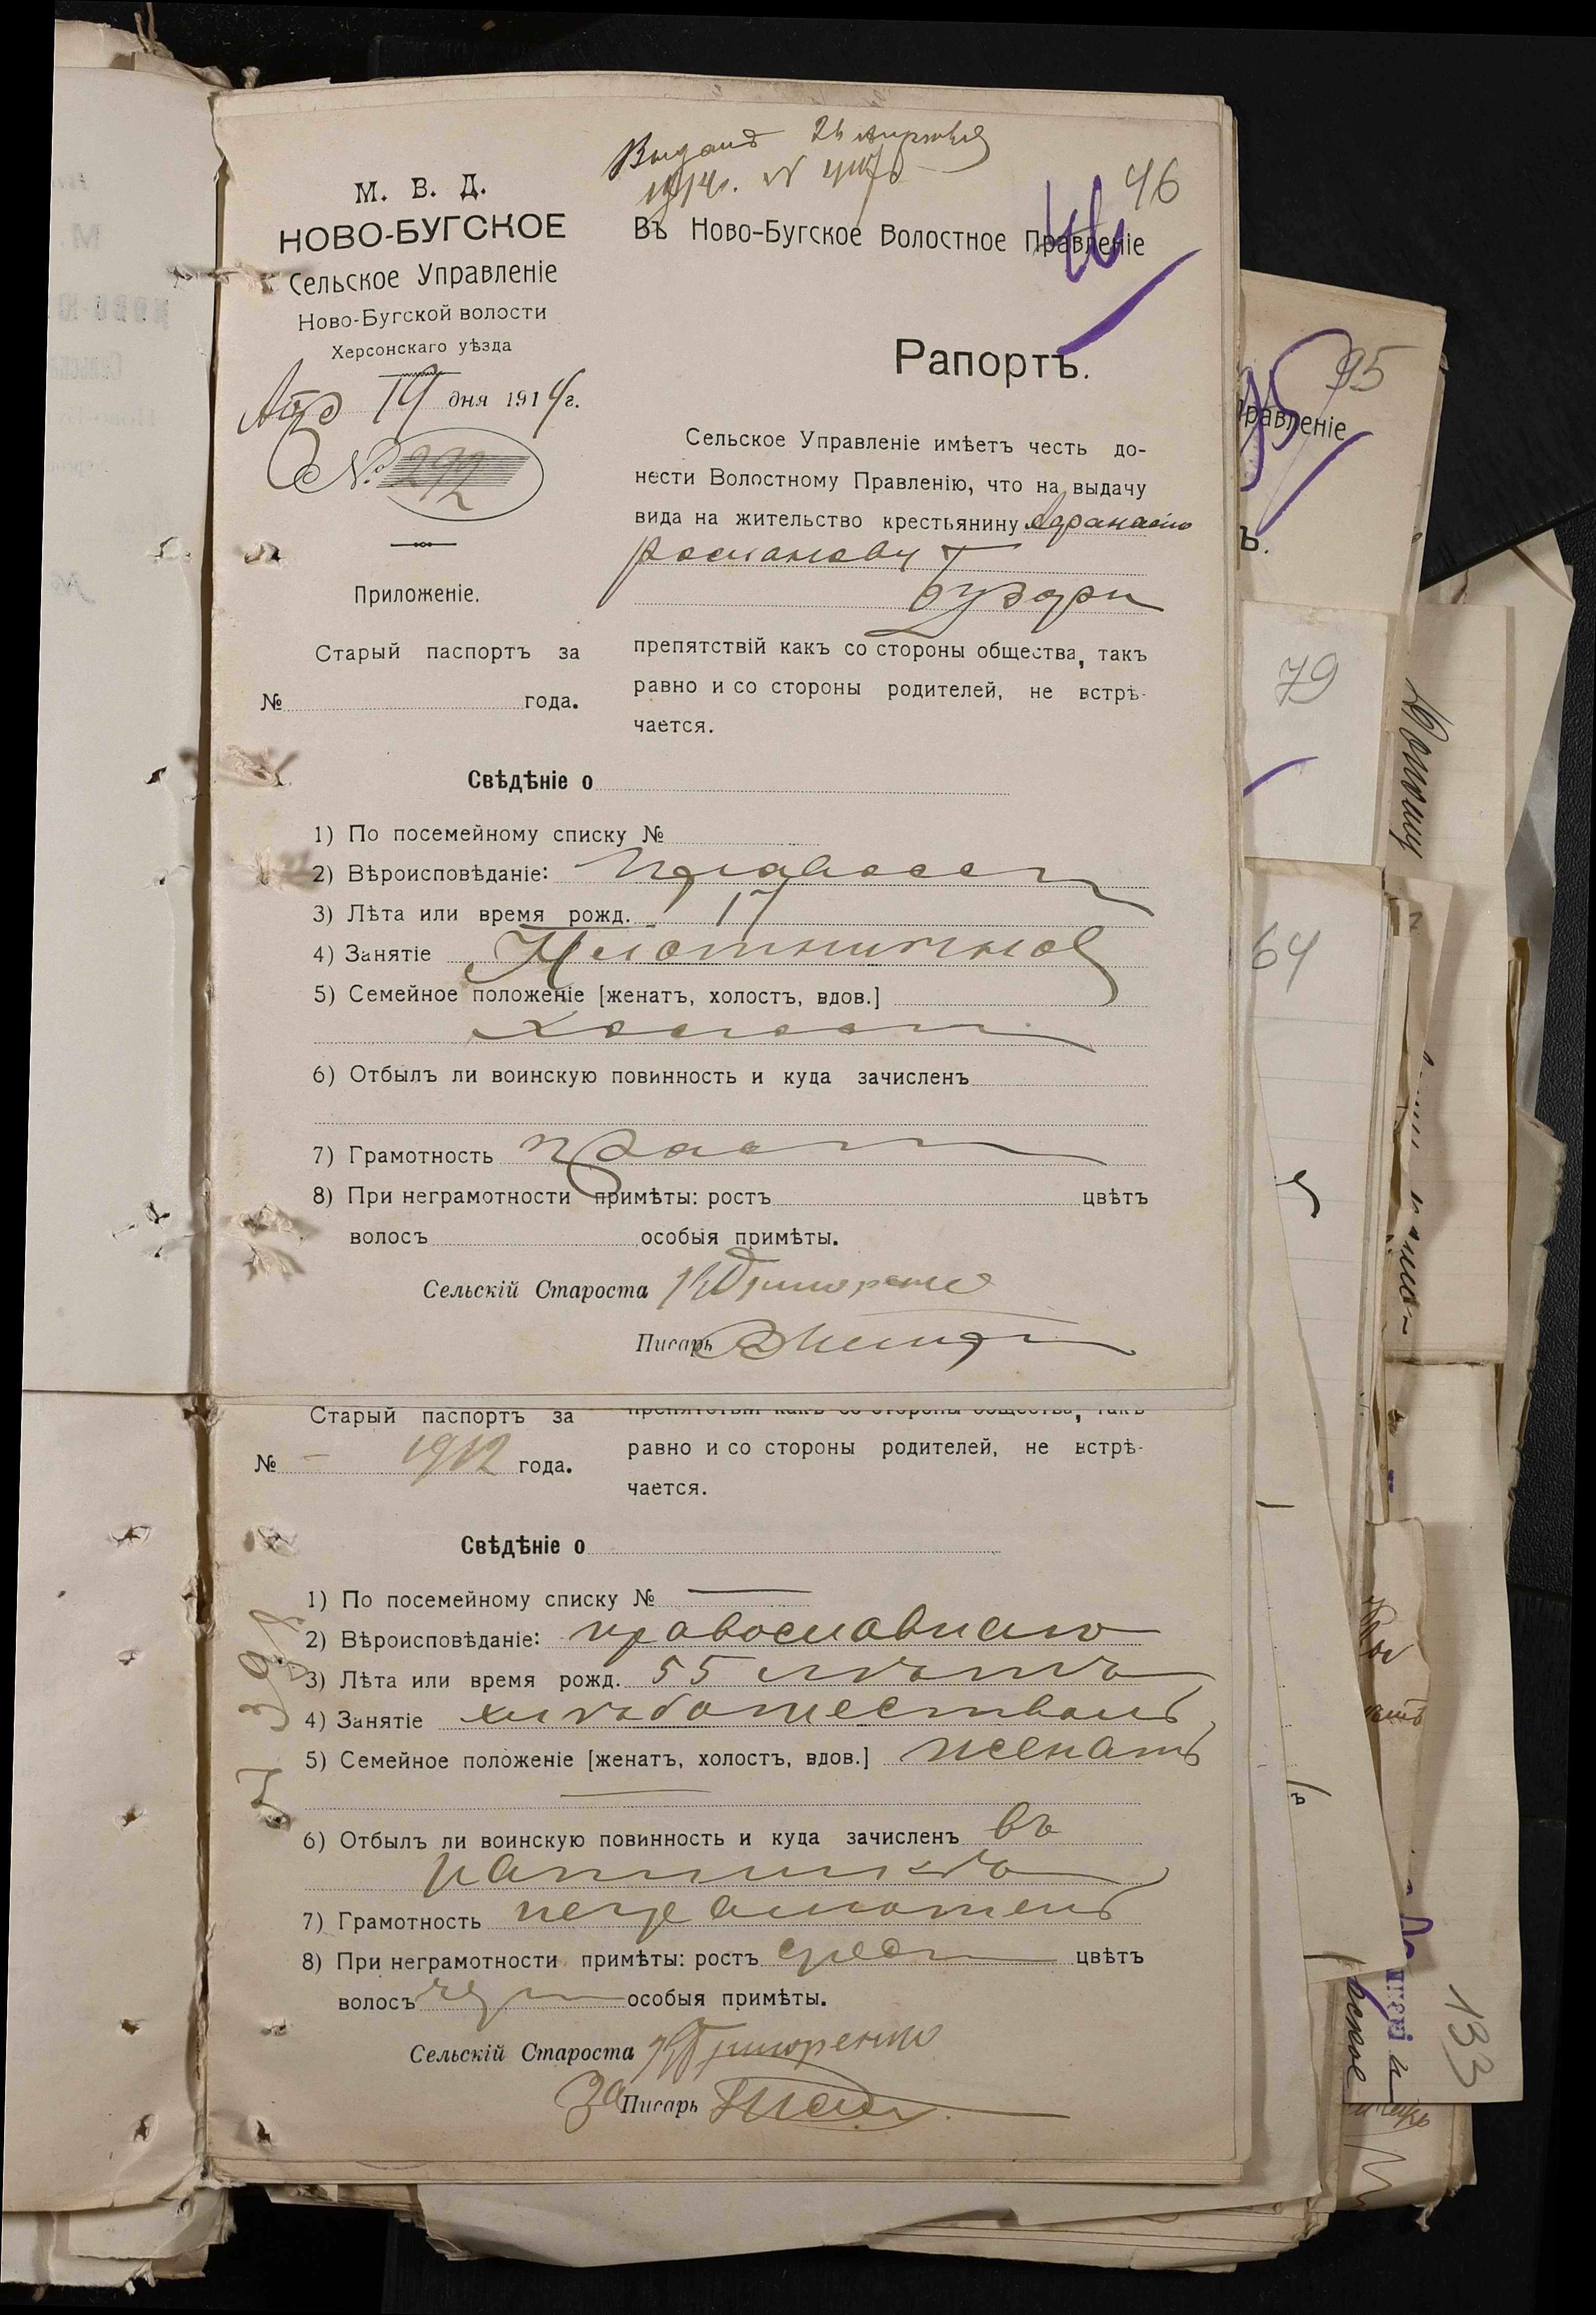 Выданъ 26 апреля
1914г. №
46
46
М. В. Д.
НОВО-БУГСКОЕ
Сельское Управленіе
Ново-Бугской волости
Херсонскаго уѣзда
19 дня 1914г.
№ 292
Въ Ново-Бугское Волостное Правленіе
Рапортъ.
Сельское Управленіе имѣетъ честь до-
нести Волостному Правленію, что на выдачу
вида на жительство крестьянину Афанасію
Романову
Бузари
препятствій какъ со стороны общества, такъ
равно и со стороны родителей, не встрѣ-
чается.
Приложеніе.
Старый паспортъ за
№ года.
Свѣдѣніе о
1) По посемейному списку №
2) Вѣроисповѣданіе: Православн
3) Лѣта или время рожд. 17
4) Занятіе Плотничной
5) Семейное положеніе [женатъ, холостъ, вдов.]
холост
6) Отбылъ ли воинскую повинность и куда зачисленъ
7) Грамотность
8) При неграмотности примѣты: ростъ цвѣтъ
волосъ особыя примѣты.
Сельскій Староста Григоренко
Писарь
Старый паспортъ за
№ – 1912 года.
препятствій какъ со стороны общества, такъ
равно и со стороны родителей, не встрѣ-
чается.
Свѣдѣніе о
1) По посемейному списку № —
2) Вѣроисповѣданіе: православнаго
3) Лѣта или время рожд. 55 лѣтъ
4) Занятіе хлѣбопашествомъ
5) Семейное положеніе [женатъ, холостъ, вдов.] женатъ
6) Отбылъ ли воинскую повинность и куда зачисленъ въ
7) Грамотность неграмотенъ
8) При неграмотности примѣты: ростъ средн цвѣтъ
волосъ чер особыя примѣты.
Сельскій Староста Григоренко
За Писарь
95
95
правленіе
ъ.
79
64
133